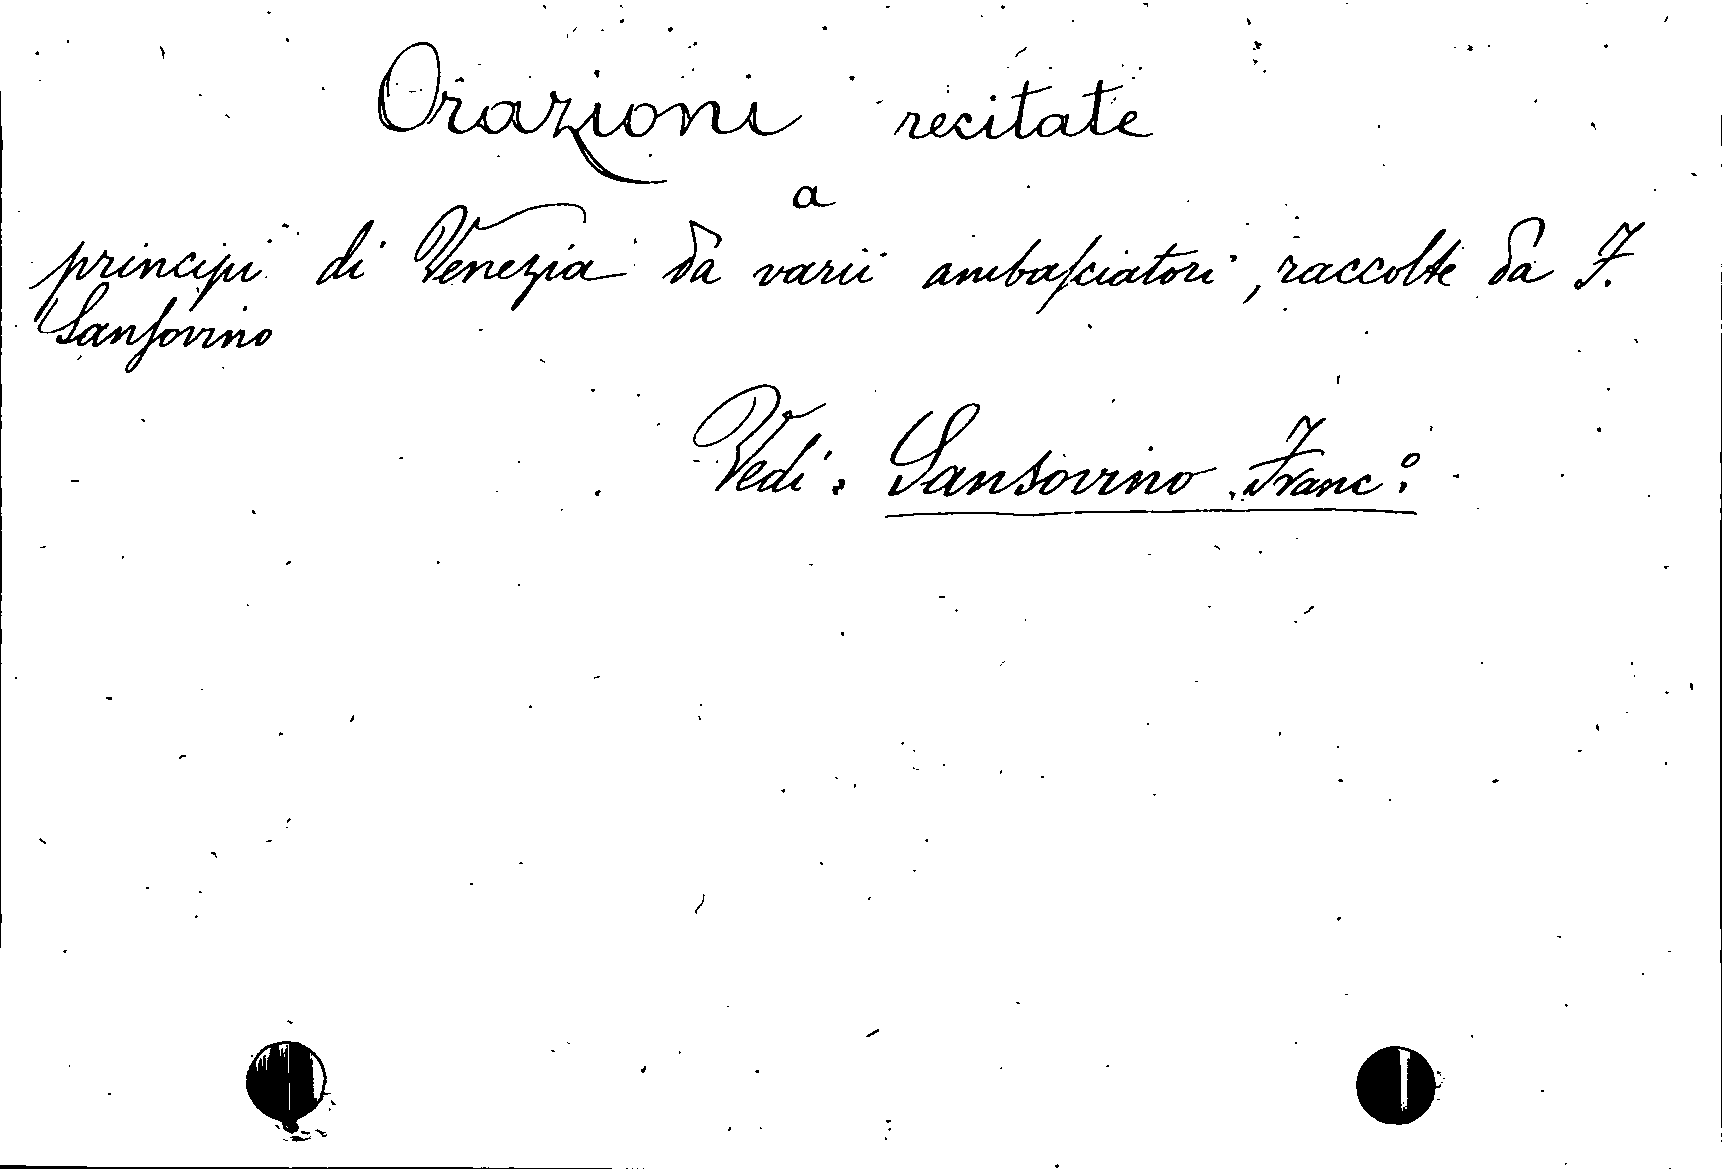 Orazioni recitate
a
principi di Venezia da varii ambasciatori, raccolte da F.
Sansovino
Vedi: Sansovino Franc.º